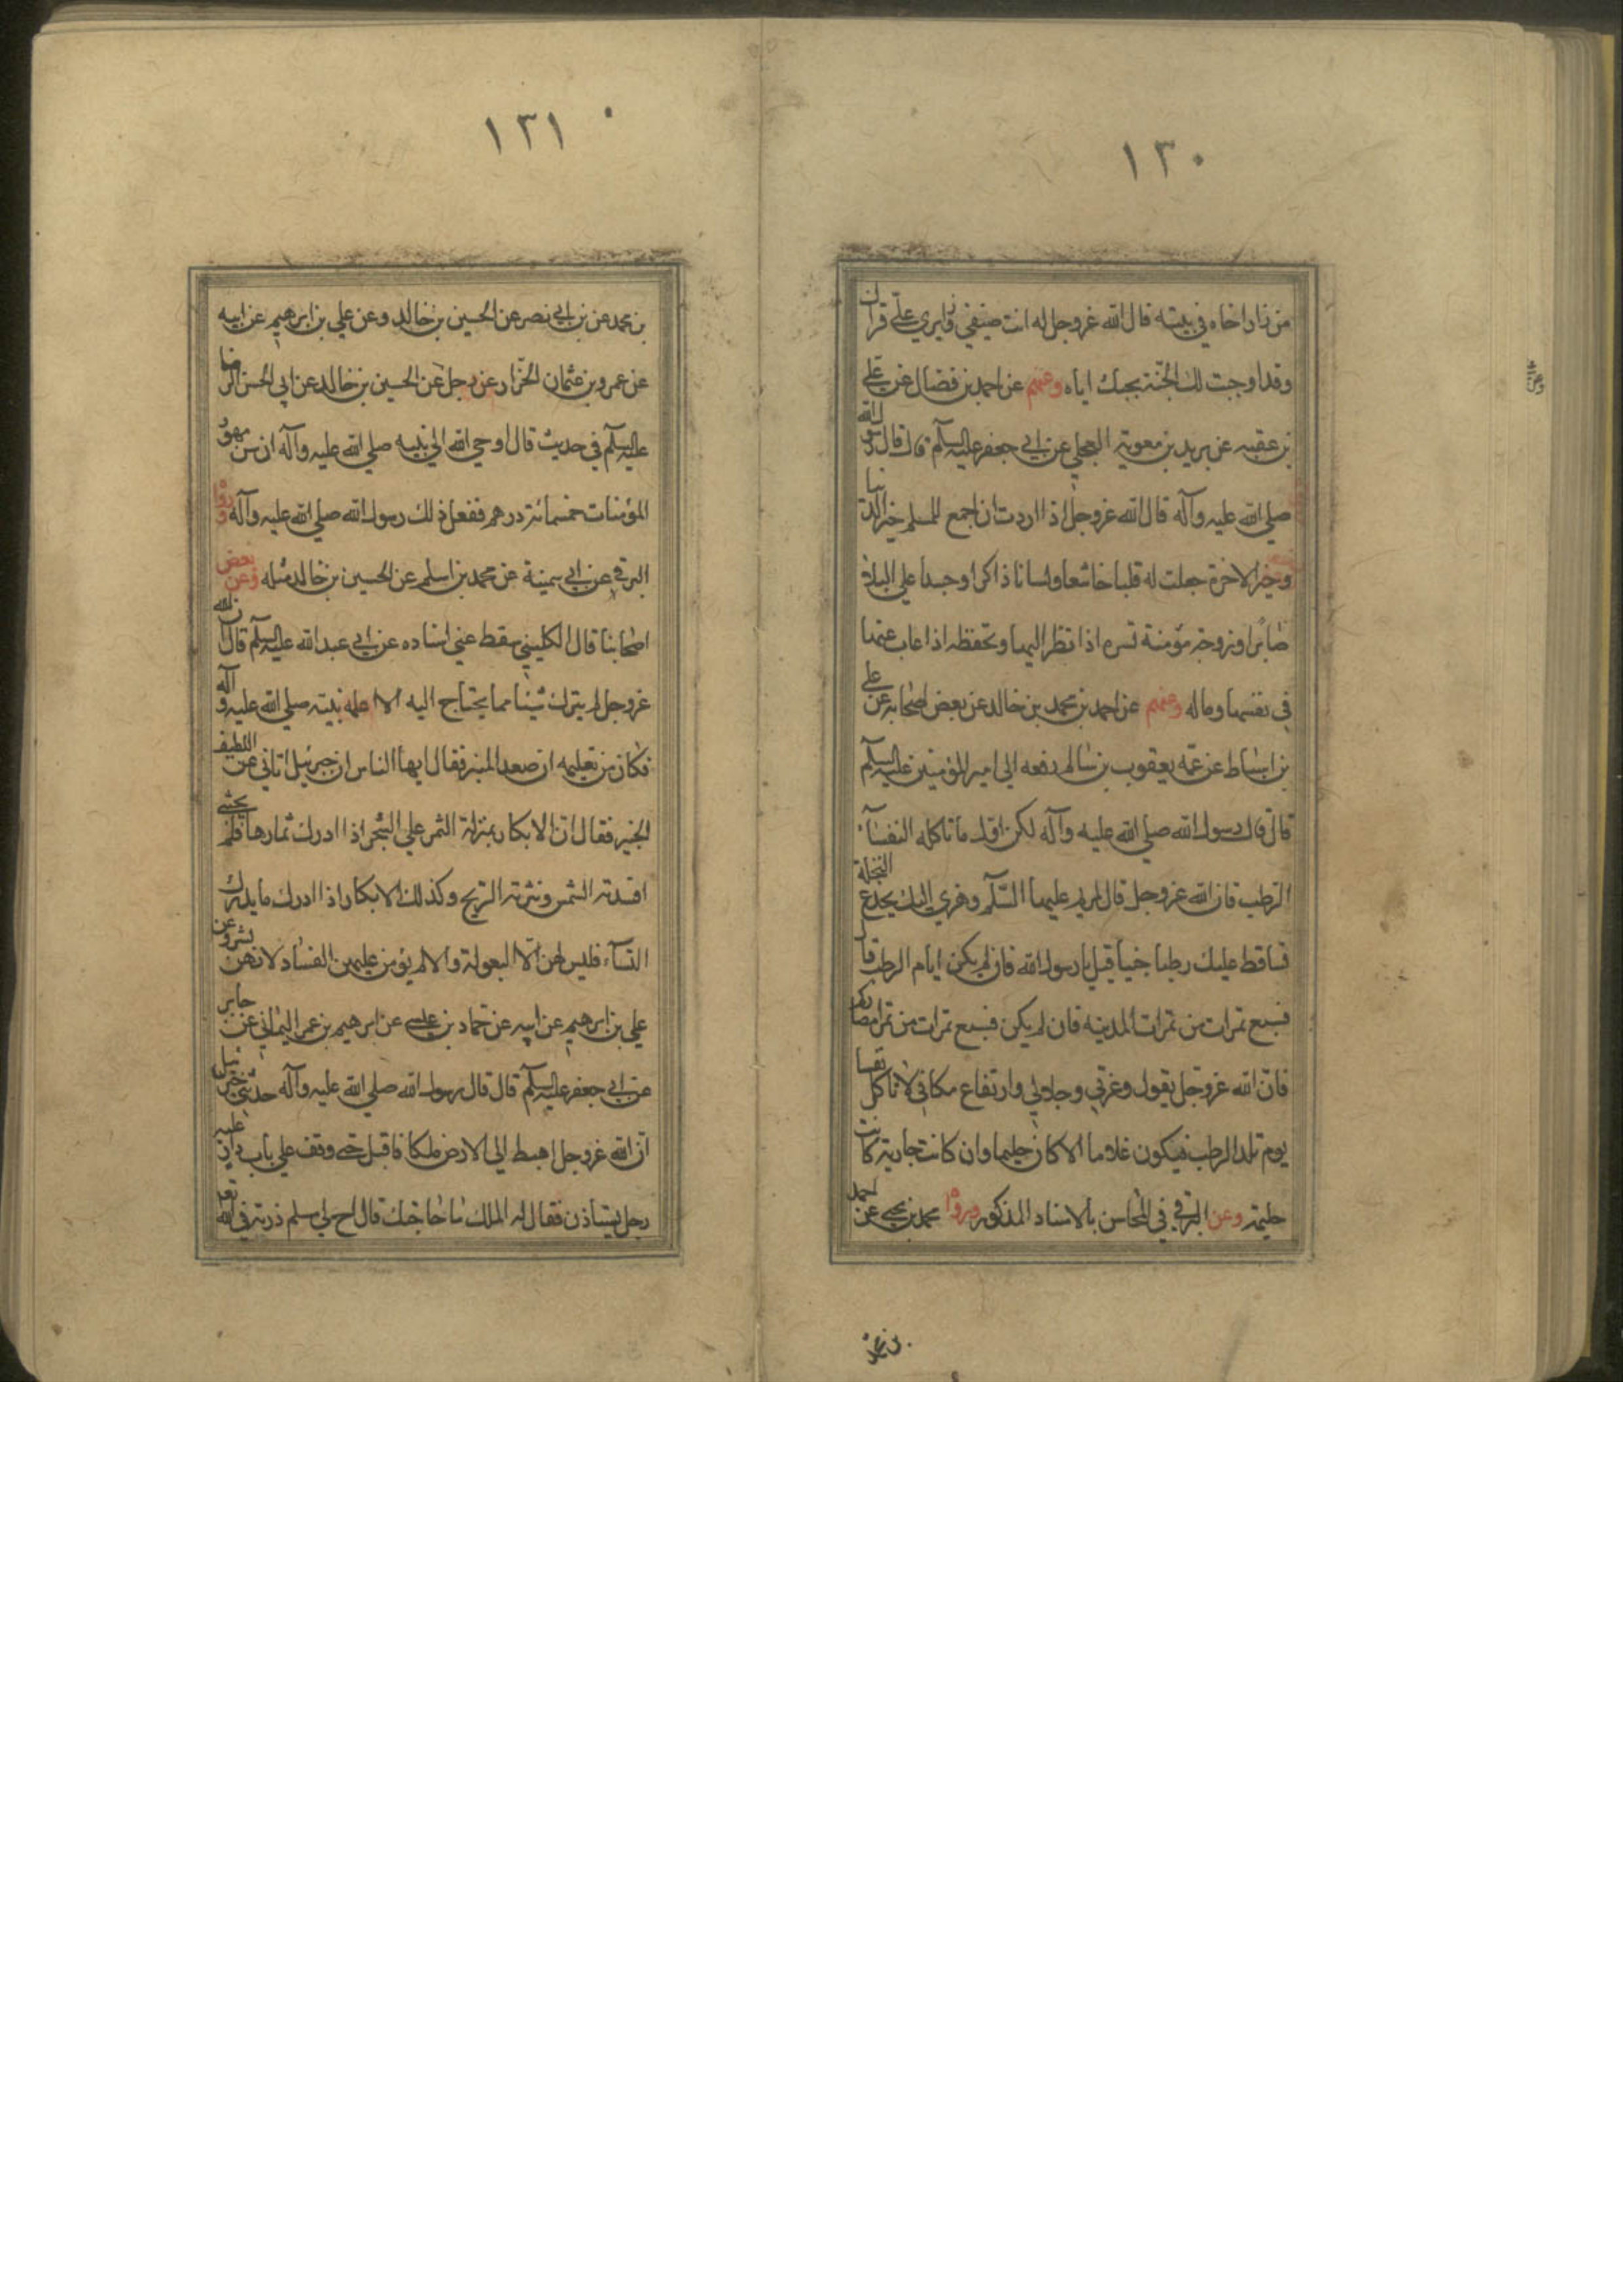 ١٣٠
من زار اخاه في بيته قال الله عزوجل له انت ضيفي وزايري علي قراك
وقد اوجبت لك الجنة بحبك اياه وعنهم عن احمد بن فضال عن علي
بن عقبه عن بريد بن معوية العجلي عن ابي جعفر عليه السلم قال قال رسول الله
صلي الله عليه وآله قال الله عزوجل اذا اردت ان اجمع للمسلم خير الدنيا
وخير الاخرة جعلت له قلبا خاشعا ولسانا ذاكرا وجسدا علي البلاء
صابرا وزوجة مؤمنة تسره اذا نظر اليها وتحفظه اذا غاب عنها
في نفسها وماله وعنهم عن احمد بن محمد بن خالد عن بعض اصحابه عن علي
بن اسباط عن عمه يعقوب بن سالم رفعه الي امير المؤمنين عليه السلم
قال قال رسول الله صلي الله عليه وآله لكن اول ما تاكله النفساء
الرطب فان الله عزوجل قال لمريم عليها السلم وهزي اليك بجذع النخلة
تساقط عليك رطبا جنيا قيل يا رسول الله فان لم يكن ايام الرطب قال
فسبع تمرات من تمرات المدينه فان لم يكن فسبع تمرات من تمر امصاركم
فان الله عزوجل يقول وعزتي وجلالي وارتفاع مكاني لا تاكل نفسا
يوم تلد الرطب فيكون غلاما الا كان حليما وان كانت جارية كانت
حليمة وعن البرقي في المحاسن بالاسناد المذكور وروا محمد بن يحيي عن احمد
بن محمد
١٣١
بن محمد عن بن ابي نصر عن الحسين بن خالد وعن علي بن ابرهيم عن ابيه
عن عمرو بن عثمان الخزار عن رجل عن الحسين بن خالد عن ابي الحسن الرضا
عليه السلم في حديث قال اوحي الله الي نبيه صلي الله عليه وآله ان سن مهور
المؤمنات خمسمائة درهم ففعل ذلك رسول الله صلي الله عليه وآله وروا
البرقي عن ابي سمينة عن محمد بن اسلم عن الحسين بن خالد مثله وعن بعض
اصحابنا قال الكليني سقط عني اسناده عن ابي عبد الله عليه السلم قال ان الله
عزوجل لم يترك شيئا مما يحتاج اليه الا علمه نبيه صلي الله عليه وآله
فكان من تعليمه ان صعد المنبر فقال ايها الناس ان جبرئيل اتاني عن اللطيف
الخبير فقال ان الابكار بمنزلة الثمر علي الشجر اذا ادرك ثمارها فلم يجتني
افسدته الشمس ونثرته الريح وكذلك الابكار اذا ادرك ما يدرك
النساء فليس لهن الا البعولة والا لم يؤمن عليهن الفساد لانهن بشر وعن
علي بن ابرهيم عن ابيه عن حماد بن عيسي عن ابرهيم بن عمر اليماني عن جابر
عن ابي جعفر عليه السلم قال قال رسول الله صلي الله عليه وآله حدثني جبرئيل
ان الله عزوجل اهبط الي الارض ملكا فاقبل حتي وقف علي باب عليه
رجل يستاذن فقال له الملك ما حاجتك قال اخ لي مسلم زرته في الله